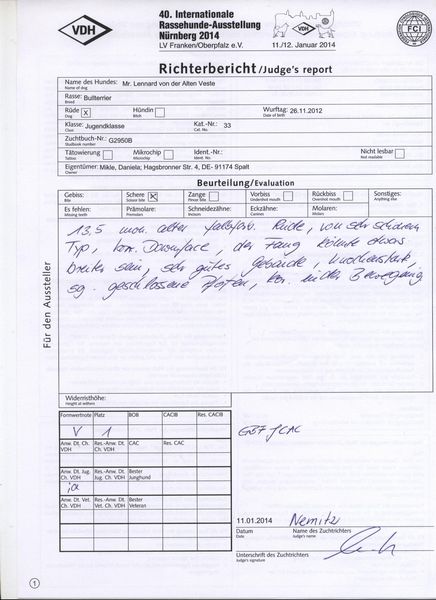 VDH
40. Internationale
Rassehunde-Ausstellung
Nürnberg 2014
LV Franken/Oberpfalz e.V.
11./12. Januar 2014
FCI
Richterbericht/Judge's report
Name des Hundes: Mr. Lennard von der Alten Veste
Name of dog
Rasse: Bullterrier
Breed
Rüde X Hündin Wurftag: 26.11.2012
Dog Bitch Date of birth
Klasse: Jugendklasse Kat.-Nr.: 33
Class Cat. No.
Zuchtbuch-Nr.: G2950B
Studbook number
Tätowierung Mikrochip Ident.-Nr.: Nicht lesbar
Tattoo Microchip Ident. No. Not readable
Eigentümer: Mikle, Daniela; Hagsbronner Str. 4, DE- 91174 Spalt
Owner
Beurteilung/Evaluation
Gebiss: Schere X Zange Vorbiss Rückbiss Sonstiges:
Bite Scissor bite Pincer bite Undershot mouth Overshot mouth Anything else
Es fehlen: Prämolare: Schneidezähne: Eckzähne: Molaren:
Missing teeth Premolars Incisors Canines Molars
13,5 mon. alter Rüde, von sehr schönem
Typ, kor. Downface, der Fang könnte etwas
breiter sein, sehr gutes Gebäude, knochenstark,
sg. geschlossene Pfoten, kor. in der Bewegung
Für den Aussteller
Widerristhöhe:
Height at withers
Formwertnote Platz BOB CACIB Res. CACIB
V 1
Anw. Dt. Ch. VDH Res.-Anw. Dt. Ch. VDH CAC Res. CAC
Anw. Dt. Jug. Ch. VDH Res.-Anw. Dt. Jug. Ch. VDH Bester Junghund
ja
Anw. Dt. Vet. Ch. VDH Res.-Anw. Dt. Vet. Ch. VDH Bester Veteran
11.01.2014 Nemitz
Datum Name des Zuchtrichters
Date Judge's name
Unterschrift des Zuchtrichters
Judge's signature
1